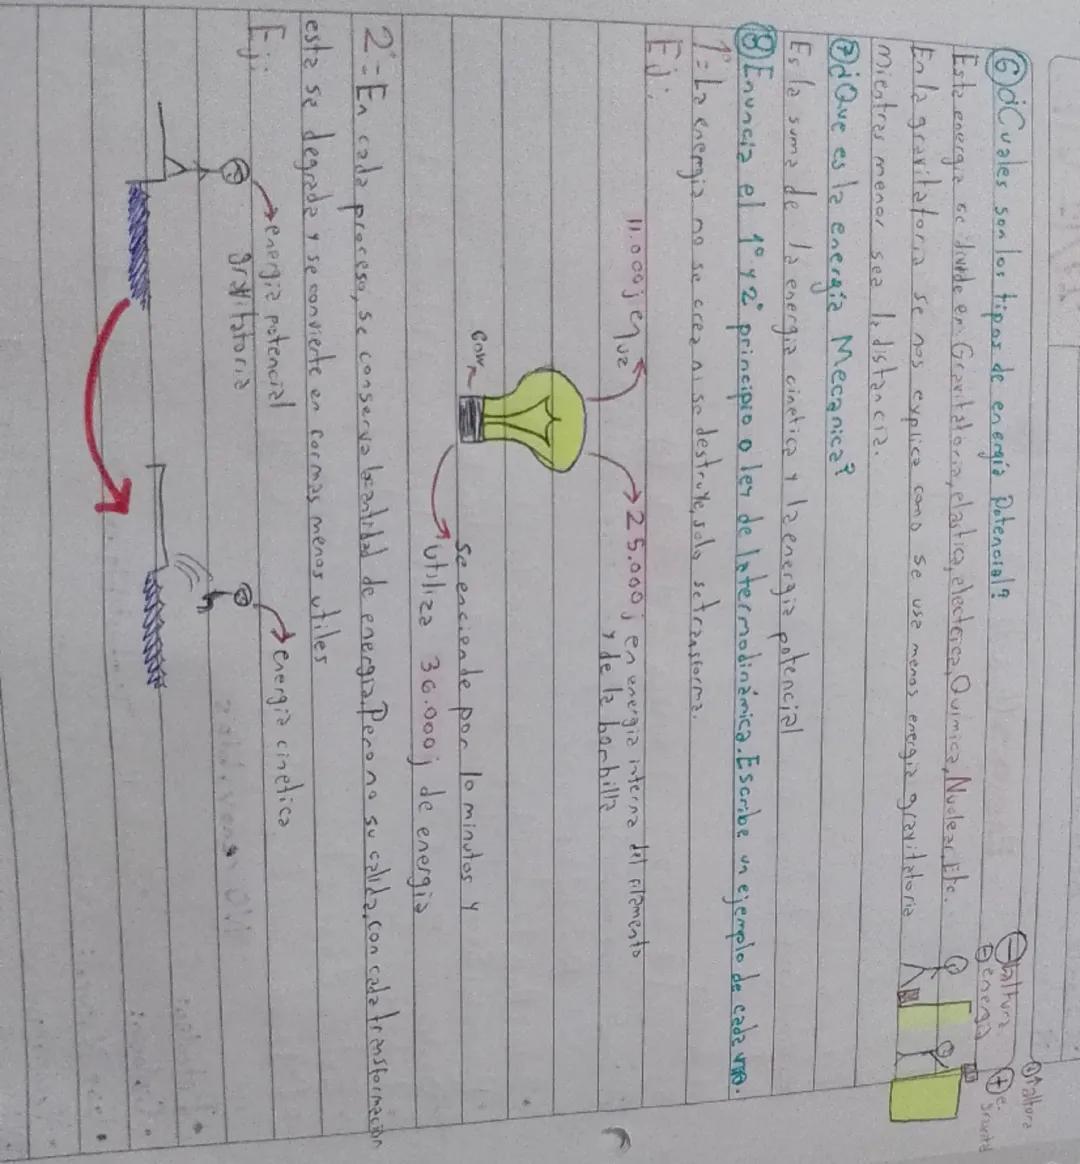 ⑥¿Cuales son los tipos de energía Potencial?
Esta energia se divide en Gravitatoria, elastica, electcrica, Quimica, Nuclear, Etc.
En la gravitatoria se nos explica como se usa menos energia gravitatoria
mientras menor sea la distancia.
⊖ altura
⊖ energia
⊕ altura
⊕ e.
⑦¿Que es la energía Mecanica?
Es la suma de la energia cinetica y la energia potencial
⑧Enuncia el 1° y 2° principio o ley de la termodinámica. Escribe un ejemplo de cada uno.
1°= La energia no se crea ni se destruye, solo se transforma.
Ej:
11.000j e luz
25.000j en energia interna del filamento
y de la bombilla
60w
Se enciende por 10 minutos y
utiliza 36.000j de energia
2°= En cada proceso, se conserva la cantidad de energia. Pero no su calida, con cada transformación
esta se degrada y se convierte en formas menos utiles
Ej:
energia potencial
gravitatoria
energia cinetica